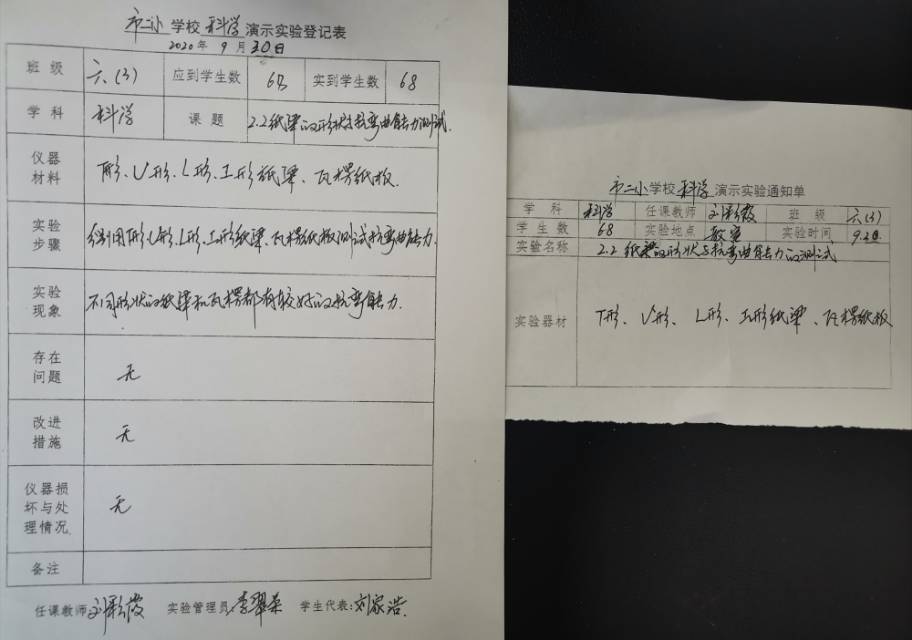 市二小学校科学演示实验登记表
2020年9月30日
班级 六(3) 应到学生数 68 实到学生数 68
学科 科学 课题 2.2纸梁的形状与抗弯曲能力测试.
仪器材料 T形、U形、L形、工形纸梁、瓦楞纸板.
实验步骤 分别用T形、U形、L形、工形纸梁、瓦楞纸板测试抗弯曲能力.
实验现象 不同形状的纸梁和瓦楞都有较好的抗弯能力.
存在问题 无
改进措施 无
仪器损坏与处理情况 无
备注
任课教师:刘彩霞 实验管理员:李翠英 学生代表:刘家浩.
市二小学校科学演示实验通知单
学科 科学 任课教师 刘彩霞 班级 六(3)
学生数 68 实验地点 教室 实验时间
实验名称 2.2 纸梁的形状与抗弯曲能力的测试
实验器材 T形、U形、L形、工形纸梁、瓦楞纸板